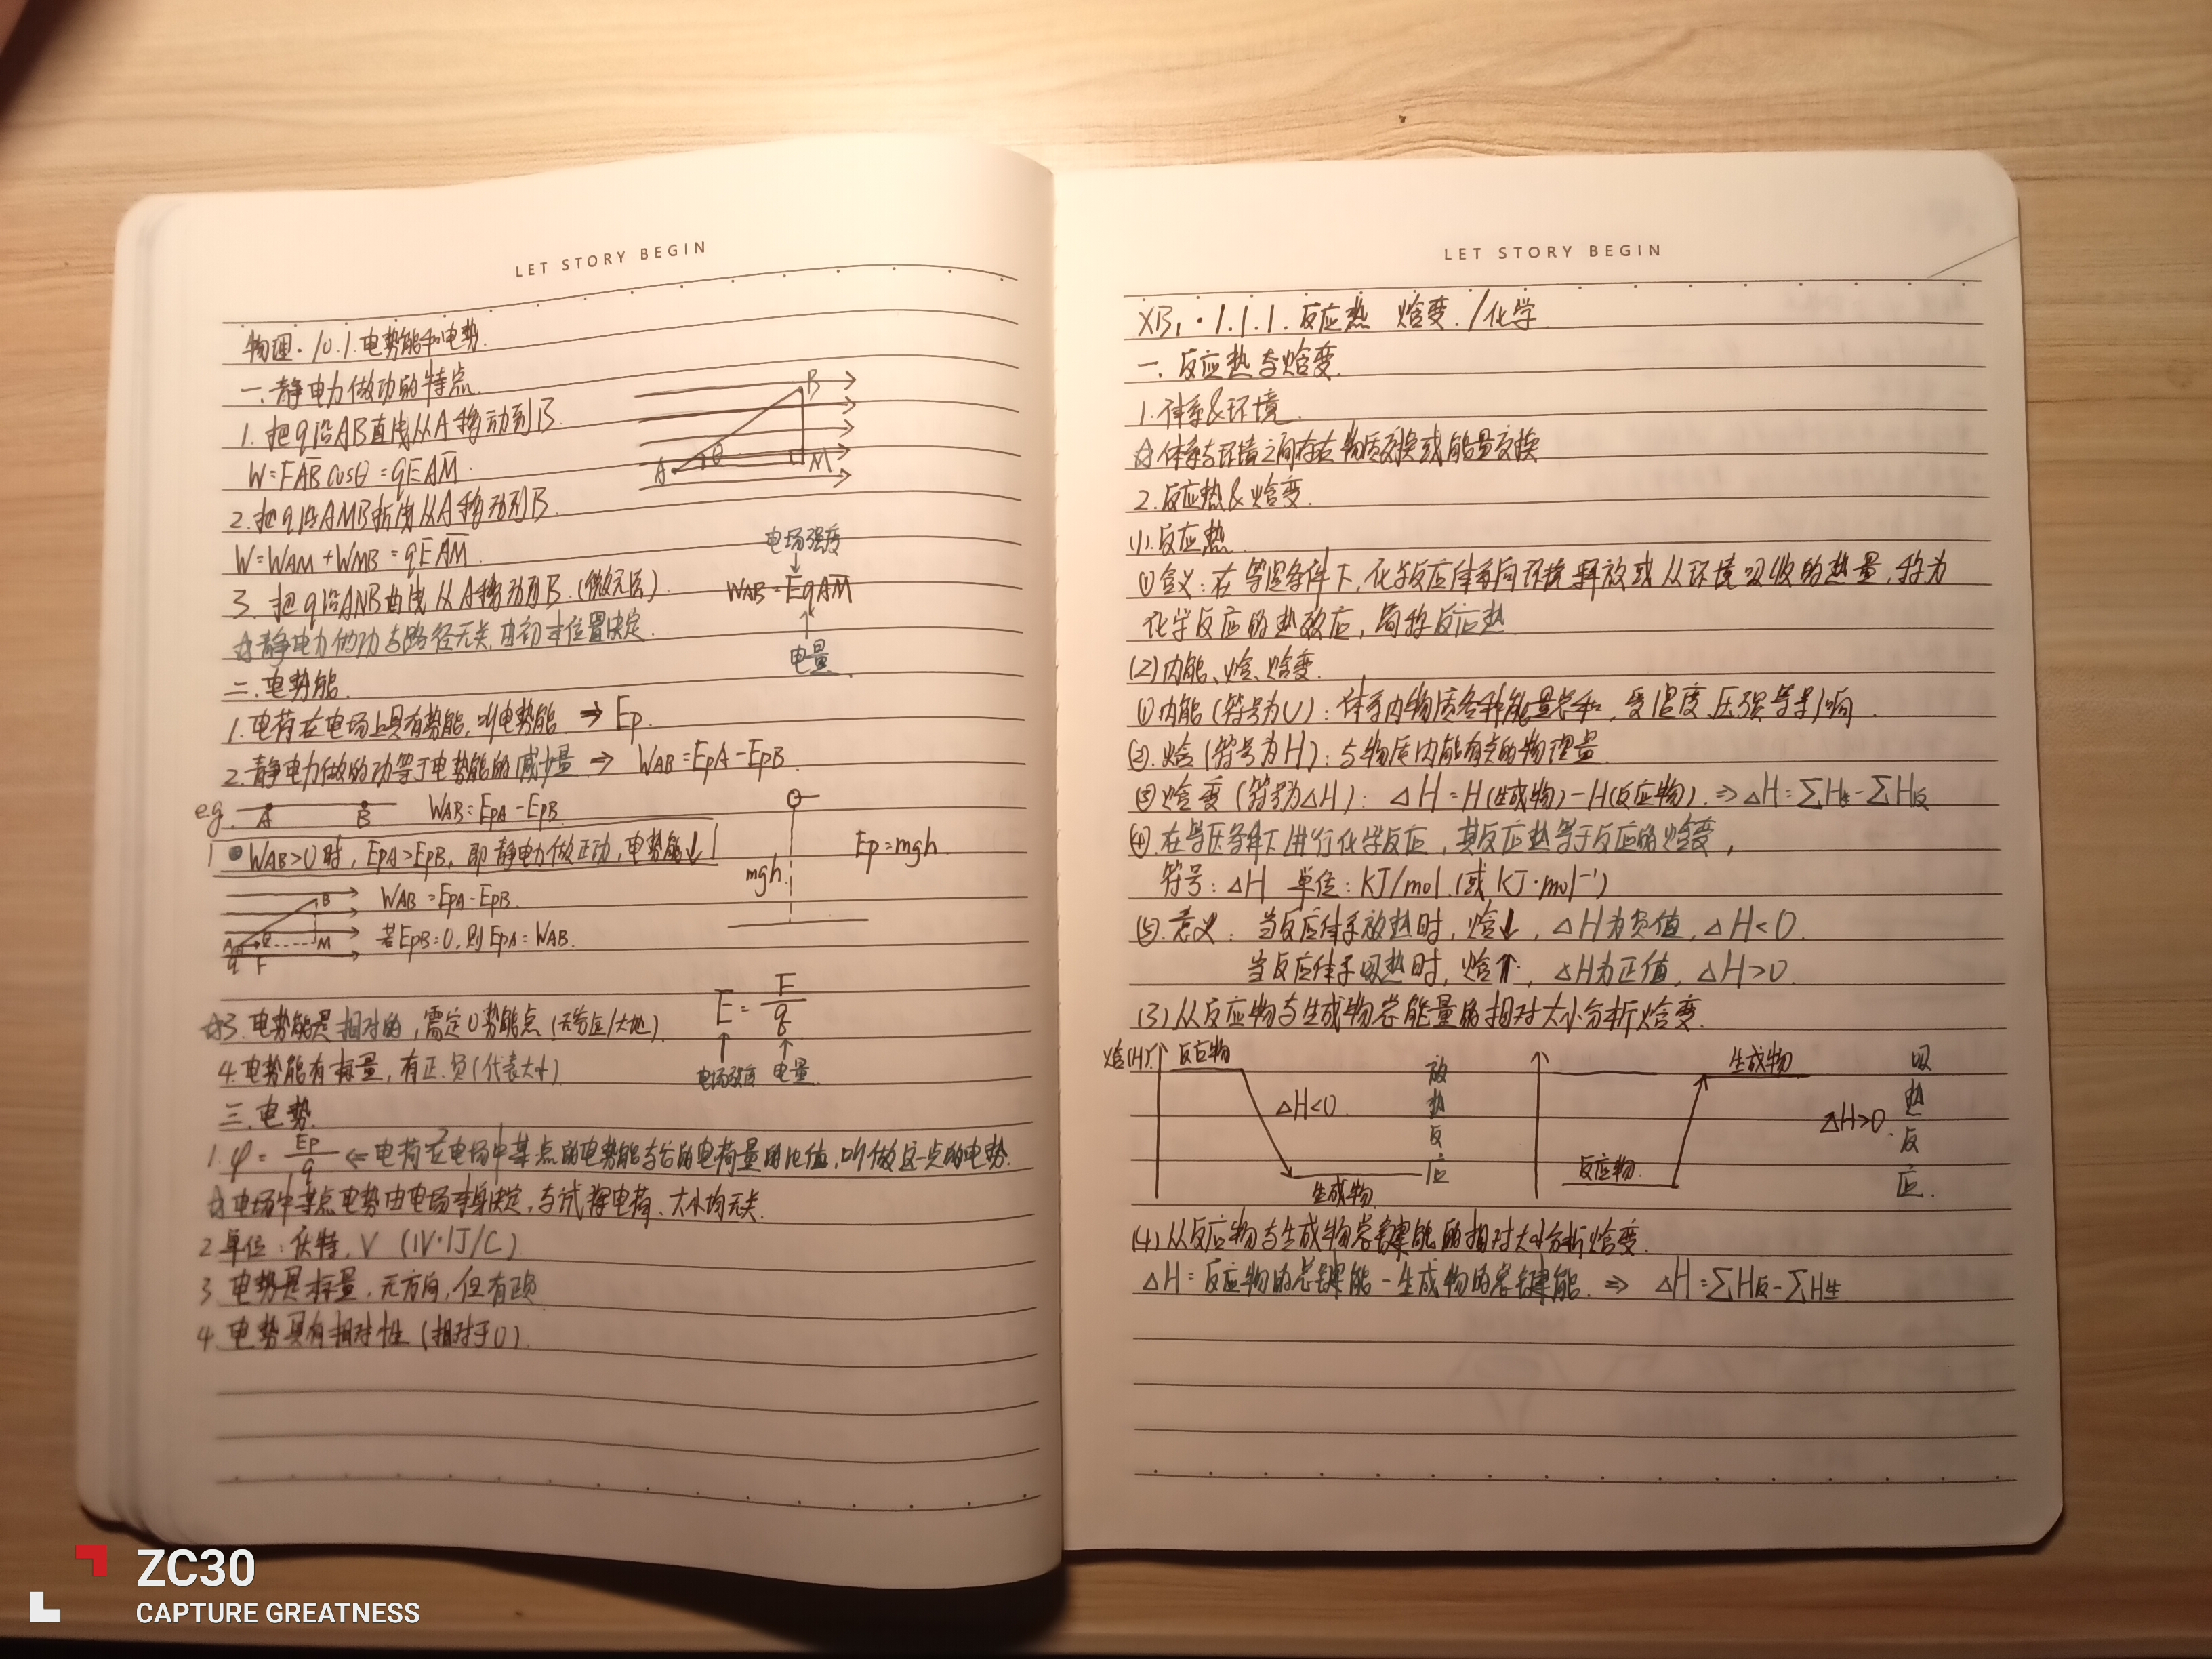 LET STORY BEGIN
物理·10.1.电势能和电势.
一.静电力做功的特点.
1.把q沿AB直线从A移动到B.
W=FAB̅cosθ=qEAM̅.
2.把q沿AMB折线从A移动到B.
W=WAM+WMB=qEAM̅.
3.把q沿ANB曲线从A移动到B.(微元法)
☆静电力做功与路径无关,由初末位置决定.
B
A θ M
电场强度
↓
WAB=EqAM̅
↑
电量.
二.电势能.
1.电荷在电场上具有势能,叫电势能 ⇒ Ep.
2.静电力做的功等于电势能的减少量 ⇒ WAB=EpA-EpB.
e.g. A B WAB=EpA-EpB.
1 WAB>0时,EpA>EpB,即静电力做正功,电势能↓
mgh. Ep=mgh.
B WAB=EpA-EpB.
A θ M 若EpB=0,则EpA=WAB.
q F
E=F/q
↑ ↑
电场强度 电量.
☆3.电势能是相对的,需定0势能点(无穷远/大地).
4.电势能有标量,有正.负(代表大小)
三.电势.
1.φ=Ep/q ⇐电荷在电场中某点的电势能与它的电荷量的比值,叫做这一点的电势.
☆电场中某点电势由电场本身决定,与试探电荷、大小均无关.
2.单位:伏特,V (1V·1J/C)
3.电势是标量,无方向,但有正负
4.电势具有相对性(相对于0).
LET STORY BEGIN
XB1·1.1.1.反应热 焓变./化学
一.反应热与焓变.
1.体系&环境.
☆体系与环境之间存在物质交换或能量交换
2.反应热&焓变.
(1).反应热.
①含义:在等温条件下,化学反应体系向环境释放或从环境吸收的热量,称为
化学反应的热效应,简称反应热
(2)内能、焓、焓变.
①内能(符号为U):体系内物质各种能量总和,受温度、压强等影响.
②.焓(符号为H):与物质内能有关的物理量.
③焓变(符号为△H): △H=H(生成物)-H(反应物).⇒△H=∑H生-∑H反
④.在等压条件下进行化学反应,其反应热等于反应的焓变,
符号:△H 单位:KJ/mol.(或KJ·mol⁻¹)
⑤.意义:当反应体系放热时,焓↓,△H为负值,△H<0.
当反应体系吸热时,焓↑,△H为正值,△H>0.
(3)从反应物与生成物总能量的相对大小分析焓变.
焓(H) 反应物 △H<0 生成物 放热反应
反应物 生成物 △H>0. 吸热反应.
(4)从反应物与生成物总键能的相对大小分析焓变.
△H=反应物的总键能-生成物的总键能. ⇒ △H=∑H反-∑H生
ZC30
CAPTURE GREATNESS